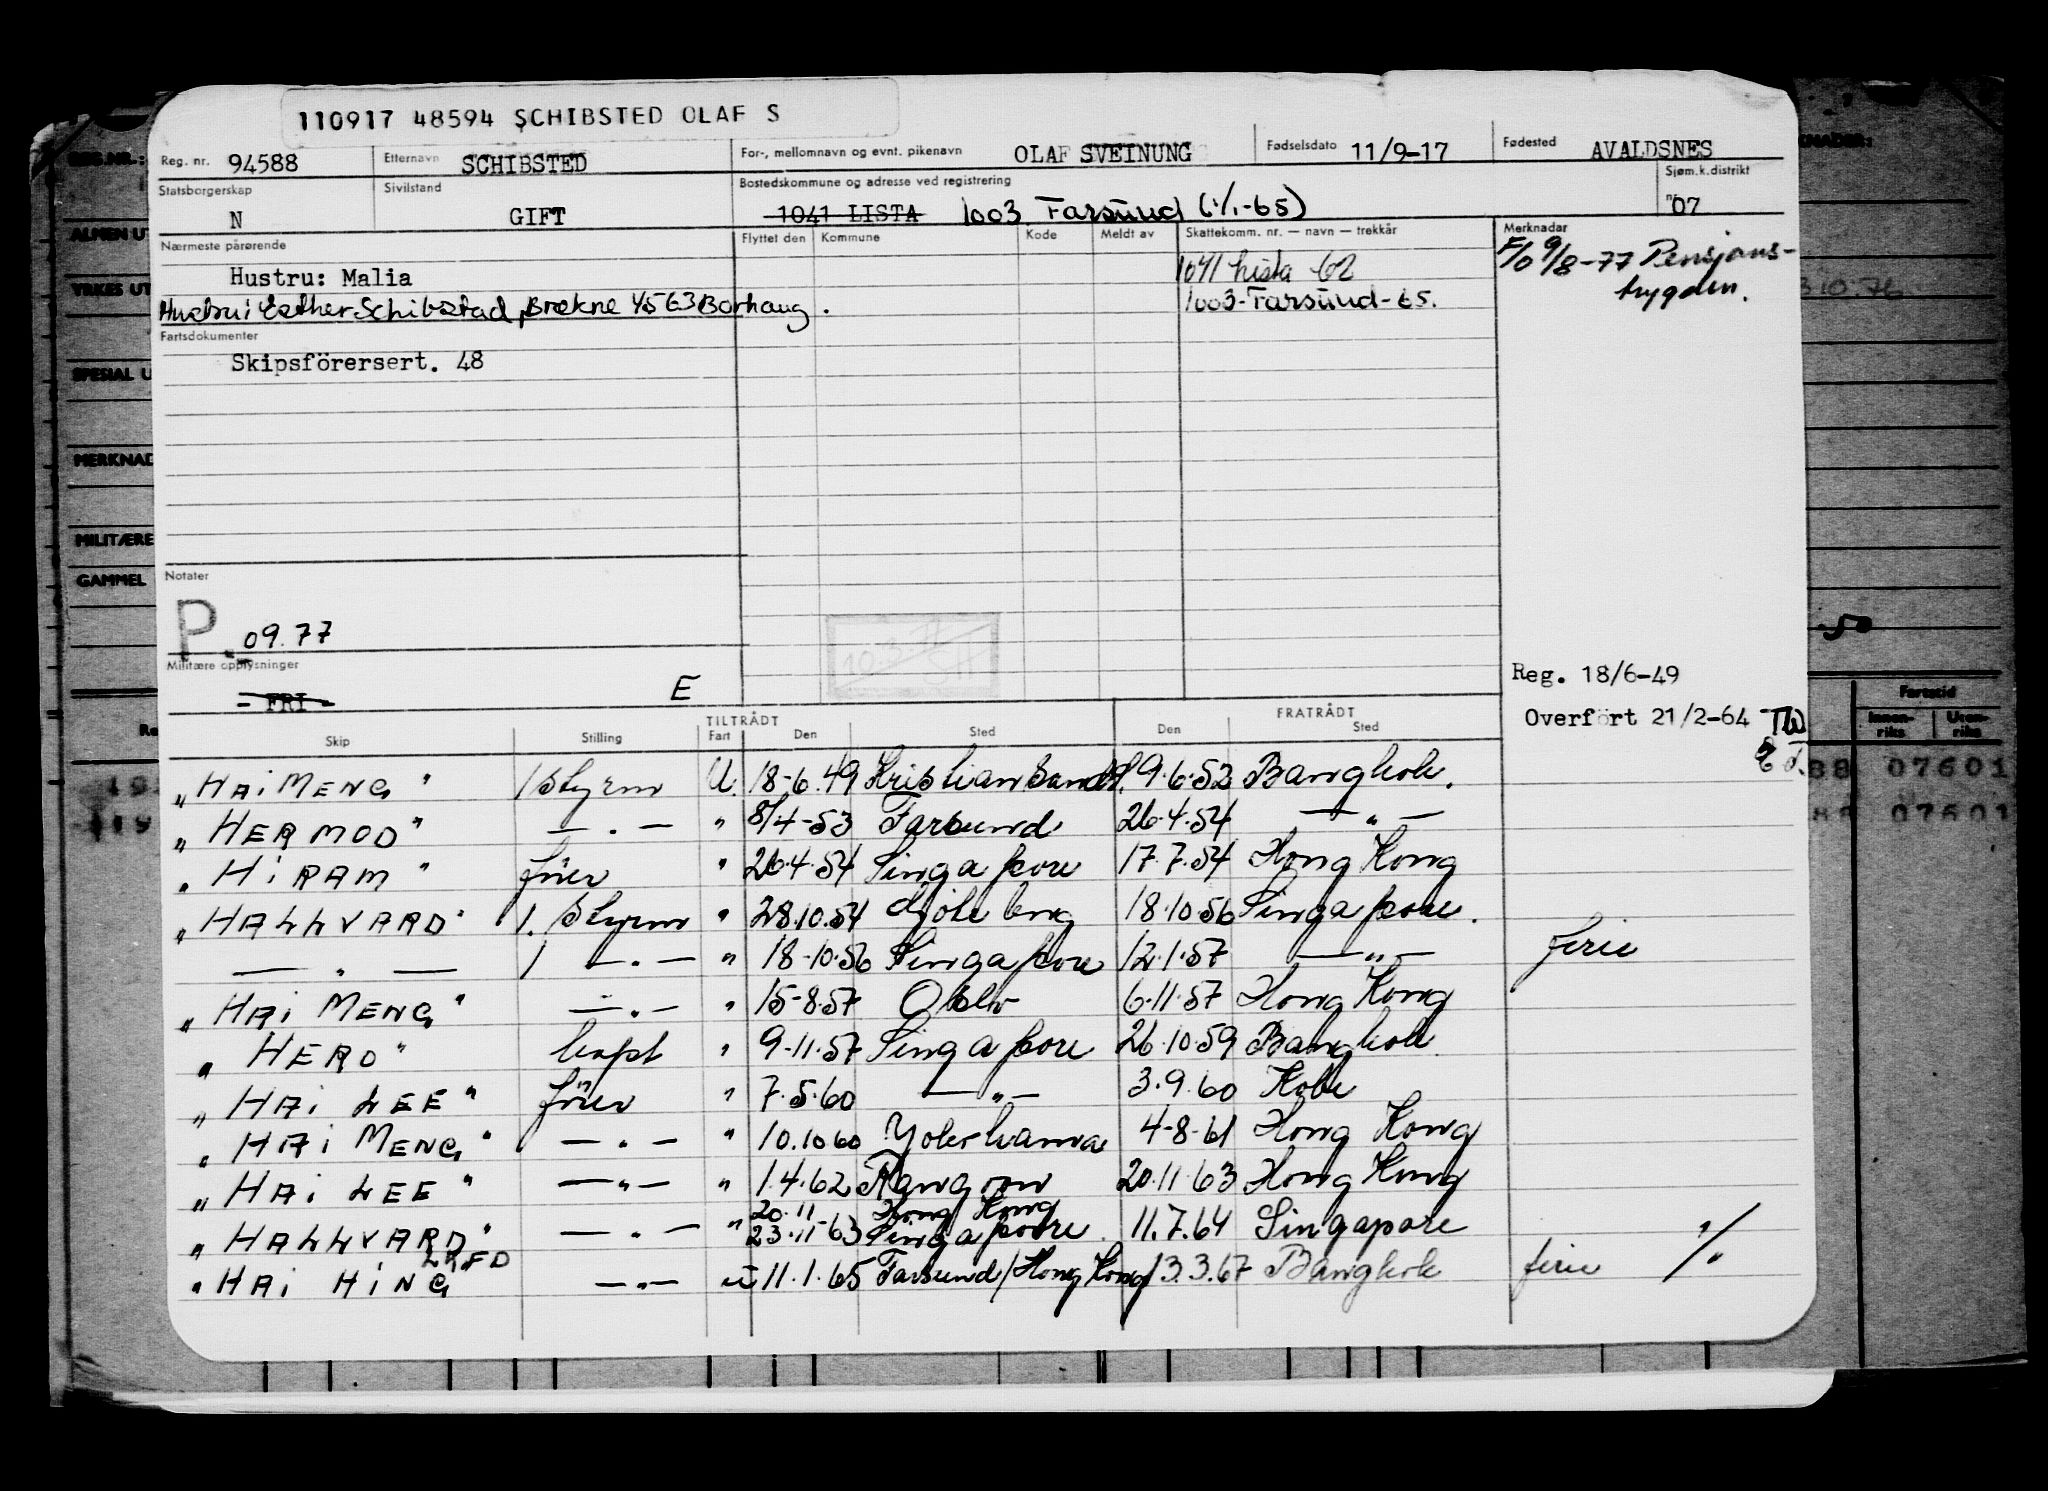 110917 48594 SCHIBSTED OLAF S
Reg. nr. 94588 Etternavn SCHIBSTED For-, mellomnavn og evnt. pikenavn OLAF SVEINUNG Fødselsdato 11/9-17 Fødested AVALDSNES
Statsborgerskap N Sivilstand GIFT Bostedskommune og adresse ved registrering 1041 LISTA 1003 Farsund (1/1-65) Sjøm.k.distrikt 07
Nærmeste pårørende Flyttet den Kommune Kode Meldt av Skattekomm. nr. — navn — trekkår Merknadar
Hustru: Malia 1041 Lista 62 F/O 9/8-77 Pensjons-
Hustru: Esther Schibstad, Brekne 4563 Borhaug. 1003-Farsund-65. trygden.
Fartsdokumenter
Skipsförersert. 48
Notater
P. 09.77
Militære opplysninger
- FRI - E
Reg. 18/6-49
Overfört 21/2-64
TILTRÅDT FRATRÅDT
Skip Stilling Fart Den Sted Den Sted
"HAI MENG" 1 Styrm U. 18-6.49 Kristiansand 19.6.52 Bangkok.
"HERMOD" — " — " 8/4-53 Farsund 26.4.54 — " —
"HIRAM" förer " 26.4.54 Singapore 17.7.54 Hong Kong
"HALLVARD" 1. Styrm " 28.10.54 18.10.56 Singapore.
— " — 1 — " — " 18-10.56 Singapore 12.1.57 — " — ferie
"HAI MENG" — " — " 15-8.57 Oslo 6.11.57 Hong Kong
"HERO" kapt " 9-11.57 Singapore 26.10.59 Bangkok
"HAI LEE" förer " 7.5.60 — " — 3.9.60 Kobe
"HAI MENG" — " — " 10.10 60 Yokohama 4-8-61 Hong Kong
"HAI LEE" — " — " 1.4.62 Rangoon 20.11.63 Hong Kong
20.11 Hong Kong
"HALLVARD" — " — " 23.11-63 Singapore 11.7.64 Singapore "/
"HAI HING LKFD — " — U 11.1.65 Farsund/Hong Kong 13.3.67 Bangkok ferie /"
REG.NR.:
ALMEN UT
YRKES UT
SPESIAL U
MERKNAD
MILITÆRE
GAMMEL
Fartstid
Innen-riks Uten-riks
88 07601
88 07601